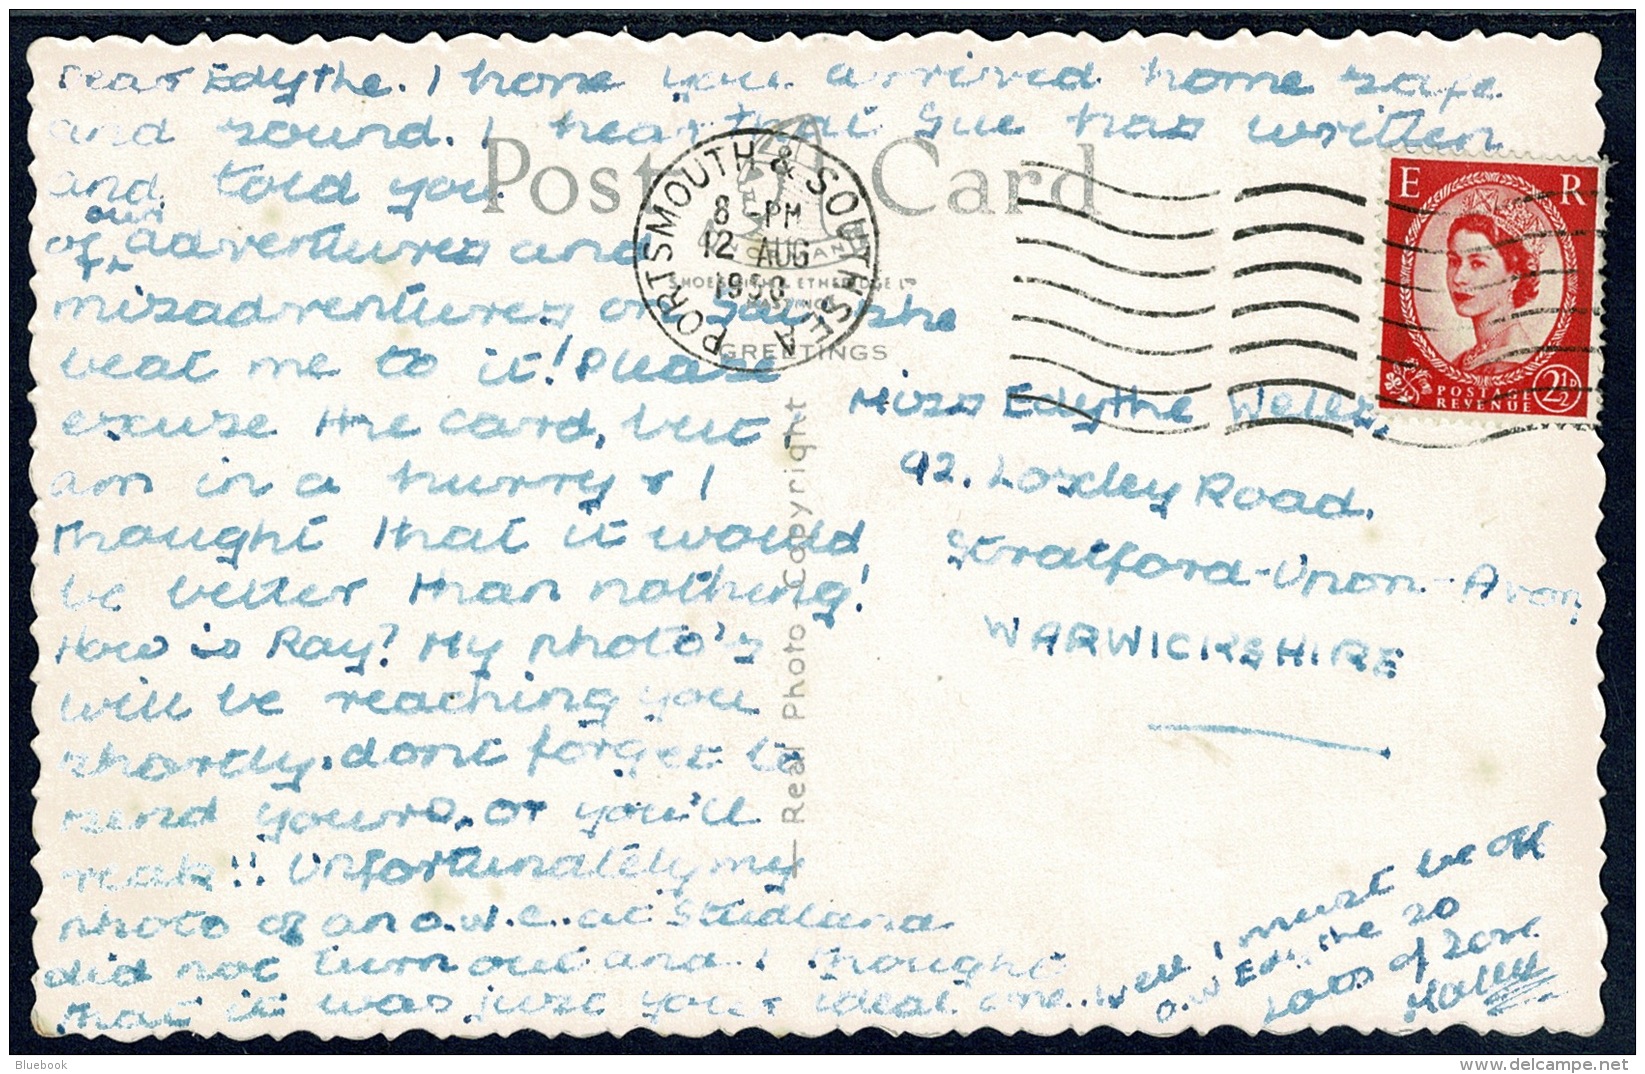 Dear Edythe. I hope you arrived home safe
and sound. I hear that Sue has written
and told you
our
of adventures and
misadventures on she
beat me to it! Please
excuse the card, but I
am in a hurry & I
thought that it would
be better than nothing!
How is Ray? My photo's
will be reaching you
shortly. dont forget to
send yours, or you'll
Unfortunately my
photo of an o.w.e. at Studland
did not turn out and I thought
that it was just your ideal one. Well I must be off
o.w Edythe so
Lots of love
Post Card
PORTSMOUTH & SOUTHSEA
8 - PM
12 AUG
1958
SHOESMITH & ETHERIDGE LTD
GREETINGS
Real Photo Copyright
E R
POSTAGE
REVENUE
2½D
Miss Edythe Wells,
92, Loxley Road,
Stratford-Upon-Avon,
WARWICKSHIRE
Bluebook
delcampe.net